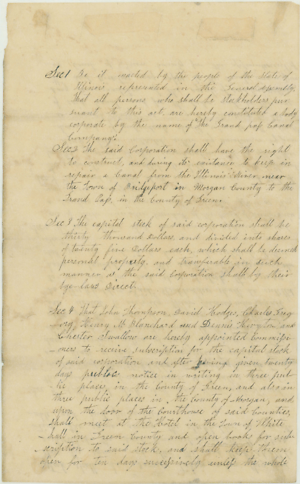 Sec 1 Be it enacted by the people of the State of
Illinois represented in the General Assembly
that all persons who shall be stockholders pur
suant to this act are hereby constituted a body
corporate by the name of "The Grand pass Canal
Company"
Sec 2 The said Corporation shall have the right
to construct, and during its existence to keep in
repair a Canal from the Illinois River near
the town of Bridgeport in Morgan County to the
Grand Pass, in the County of Greene.
Sec 3 The capital stock of said corporation shall be
thirty thousand dollars and divided into shares
of twenty five dollars each, which shall be deemed
personal property, and transferable in such
manner as the said Corporation shall by their
bye-laws direct.
Sec 4 That John Thompson, David Hodges, Charles
Henry M. Blomhard and
Chester Swallow are hereby appointed commissio
ners to receive subscription for the capital stock
of said corporation, and after giving given twenty
days public notice in writing in three pub
lic places, in the County of Green, and also in
three public places in the County of Morgan, and
upon the door of the Courthouse of said Counties,
shall meet at the Hotel in the town of White
Hall in Green County and open books for sub
scription to said stock, and shall keep them
open for ten days successively unless the whole